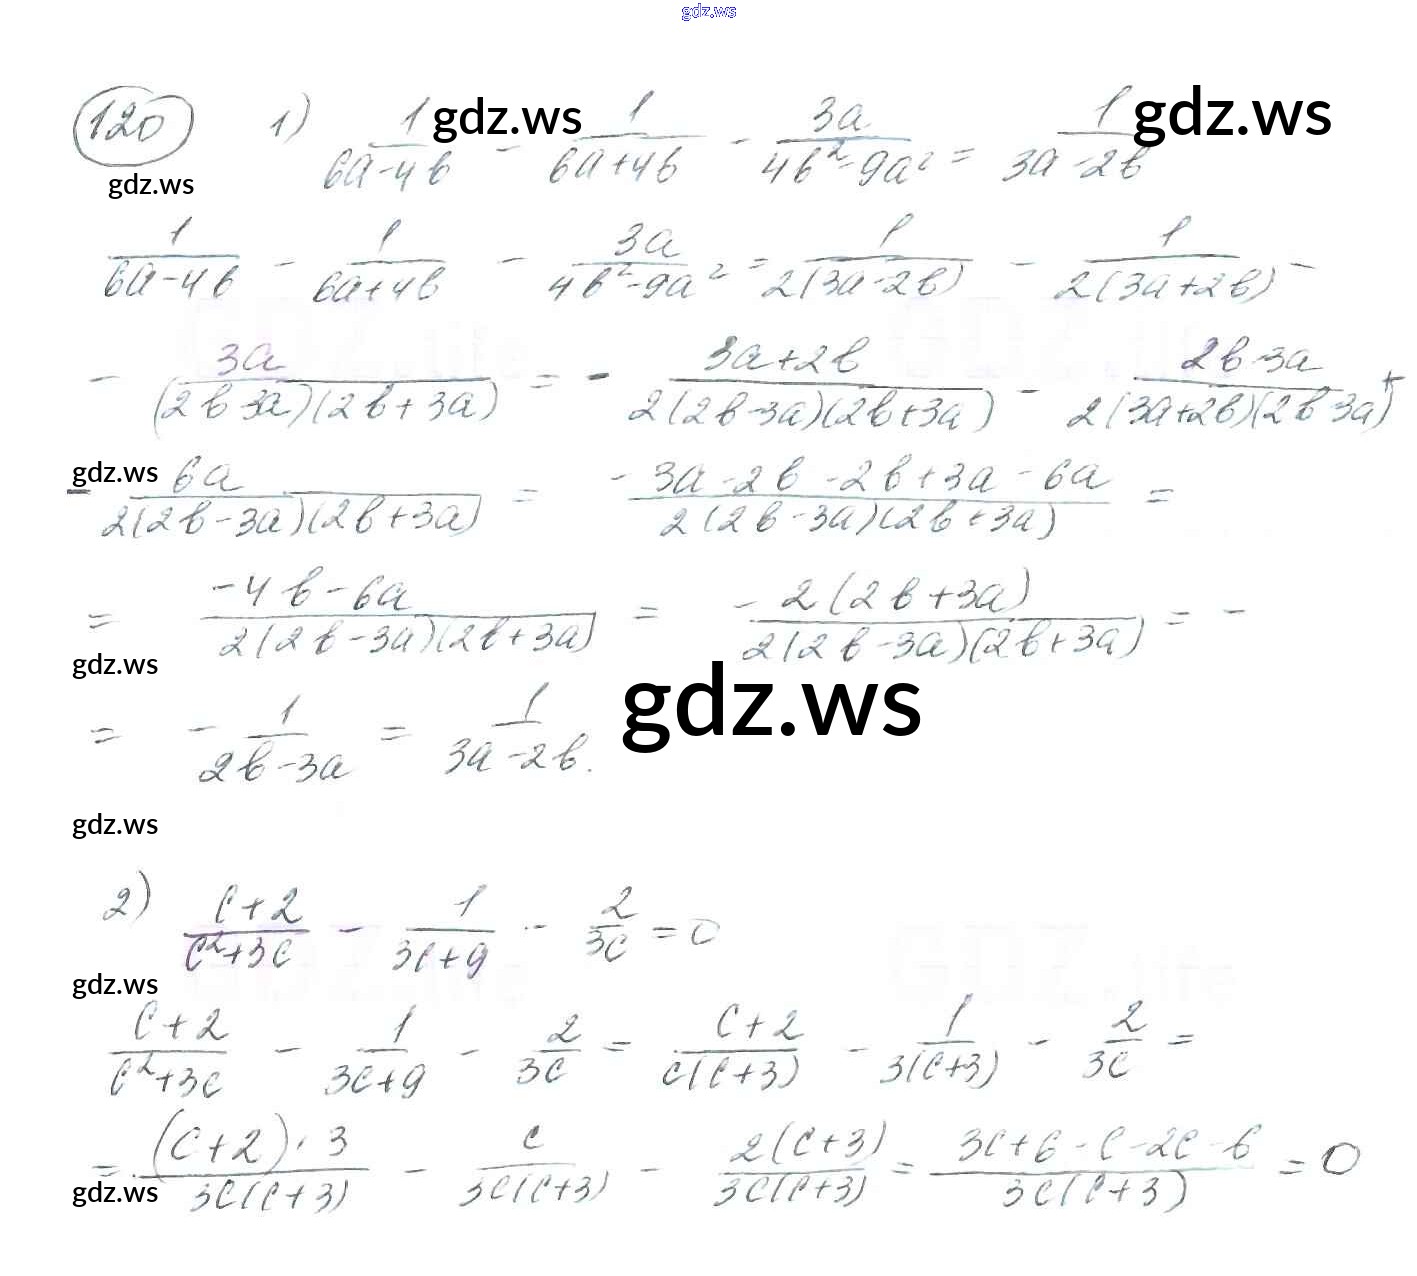 gdz.ws
120 1) 1/(6a-4b) - 1/(6a+4b) - 3a/(4b²-9a²) = 1/(3a-2b)
gdz.ws gdz.ws
gdz.ws
1/(6a-4b) - 1/(6a+4b) - 3a/(4b²-9a²) = 1/(2(3a-2b)) - 1/(2(3a+2b)) -
- 3a/((2b-3a)(2b+3a)) = - (3a+2b)/(2(2b-3a)(2b+3a)) - (2b-3a)/(2(3a+2b)(2b-3a)) +
gdz.ws
- 6a/(2(2b-3a)(2b+3a)) = (-3a-2b-2b+3a-6a)/(2(2b-3a)(2b+3a)) =
= (-4b-6a)/(2(2b-3a)(2b+3a)) = - 2(2b+3a)/(2(2b-3a)(2b+3a)) = -
gdz.ws
gdz.ws
= - 1/(2b-3a) = 1/(3a-2b).
gdz.ws
2) (c+2)/(c²+3c) - 1/(3c+9) - 2/(3c) = 0
GDZ.life GDZ.life
gdz.ws
(c+2)/(c²+3c) - 1/(3c+9) - 2/(3c) = (c+2)/(c(c+3)) - 1/(3(c+3)) - 2/(3c) =
= ((c+2)·3)/(3c(c+3)) - c/(3c(c+3)) - 2(c+3)/(3c(c+3)) = (3c+6-c-2c-6)/(3c(c+3)) = 0
gdz.ws